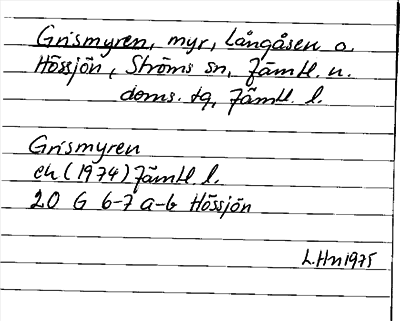 Grismyren, myr, Långåsen o.
Hössjön, Ströms sn, Jämtl. n.
doms. tg, Jämtl. l.
Grismyren
ek (1974) Jämtl. l.
20 G 6-7 a-b Hössjön
L.Hn 1975